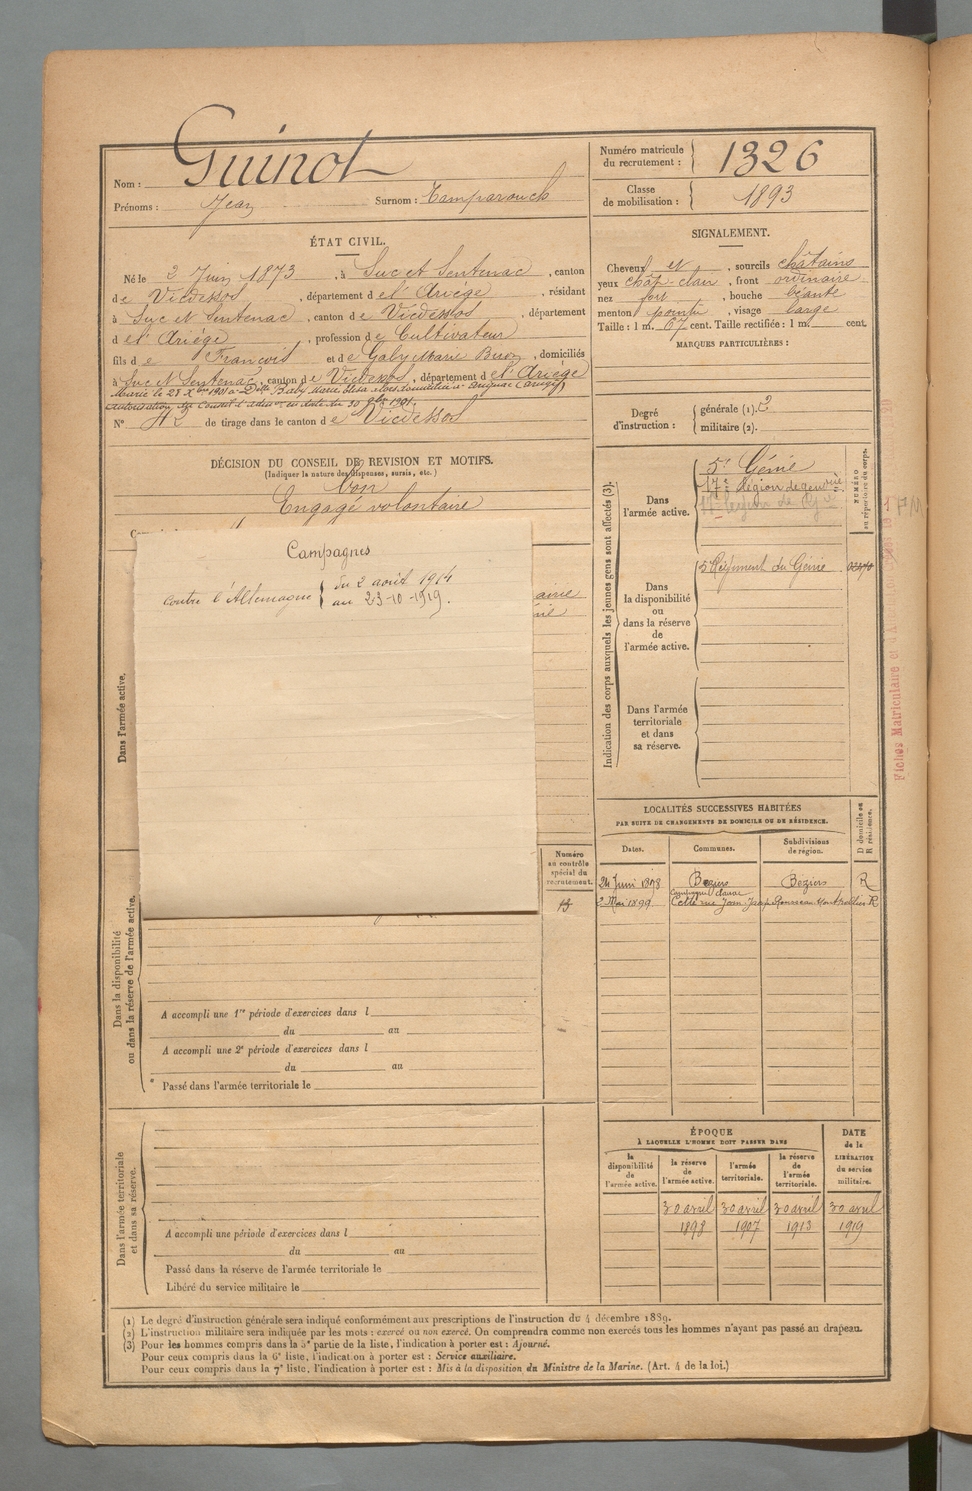 Guinot
Nom :
Prénoms : Jean Surnom : Camparouch
Numéro matricule du recrutement : 1326
Classe de mobilisation : 1893
ÉTAT CIVIL.
Né le 2 Juin 1873, à Suc et Sentenac, canton
de Vicdessos, département de l'Ariége, résidant
à Suc et Sentenac, canton de Vicdessos, département
de l'Ariége, profession de Cultivateur
fils de François et de Gaby Marie, domiciliés
à Suc et Sentenac, canton de Vicdessos, département de l'Ariége
Marié le 28 Xbre 1901 à Dlle Baby Marie
autorisation du Conseil d'adm en date du 30 9bre 1901.
N° 42 de tirage dans le canton de Vicdessos
SIGNALEMENT.
Cheveux et, sourcils châtains
yeux chât-clair, front ordinaire
nez fort, bouche béante
menton pointu, visage large
Taille : 1 m. 67 cent. Taille rectifiée : 1 m. cent.
MARQUES PARTICULIÈRES :
Degré d'instruction : générale (1). 2
militaire (2).
DÉCISION DU CONSEIL DE REVISION ET MOTIFS.
(Indiquer la nature des dispenses, sursis, etc.)
bon
Engagé volontaire
Campagnes
contre l'Allemagne du 2 août 1914
au 23-10-1919.
Dans l'armée active.
Indication des corps auxquels les jeunes gens sont affectés (3).
NUMÉRO au répertoire du corps.
Dans l'armée active.
5e Génie
17e Région de gendrie
Dans la disponibilité ou dans la réserve de l'armée active.
5 Régiment du Génie
Dans l'armée territoriale et dans sa réserve.
LOCALITÉS SUCCESSIVES HABITÉES
PAR SUITE DE CHANGEMENTS DE DOMICILE OU DE RÉSIDENCE.
D domicile ou R résidence.
Dates. Communes. Subdivisions de région.
24 Juin 1898 Beziers Beziers R
2 Mai 1899 Cette rue Jean-Jacq Rousseau Montpellier R
Numéro au contrôle spécial du recrutement.
13
Dans la disponibilité ou dans la réserve de l'armée active.
A accompli une 1re période d'exercices dans l
du au
A accompli une 2e période d'exercices dans l
du au
Passé dans l'armée territoriale le
Dans l'armée territoriale et dans sa réserve.
A accompli une période d'exercices dans l
du au
Passé dans la réserve de l'armée territoriale le
Libéré du service militaire le
ÉPOQUE
À LAQUELLE L'HOMME DOIT PASSER DANS
DATE de la LIBÉRATION du service militaire.
la disponibilité de l'armée active. la réserve de l'armée active. l'armée territoriale. la réserve de l'armée territoriale.
30 avril 30 avril 30 avril 30 avril
1898 1907 1913 1919
(1) Le degré d'instruction générale sera indiqué conformément aux prescriptions de l'instruction du 4 décembre 1889.
(2) L'instruction militaire sera indiquée par les mots : exercé ou non exercé. On comprendra comme non exercés tous les hommes n'ayant pas passé au drapeau.
(3) Pour les hommes compris dans la 5e partie de la liste, l'indication à porter est : Ajourné.
Pour ceux compris dans la 6e liste, l'indication à porter est : Service auxiliaire.
Pour ceux compris dans la 7e liste, l'indication à porter est : Mis à la disposition du Ministre de la Marine. (Art. 4 de la loi.)
Fiches Matriculaire et d'